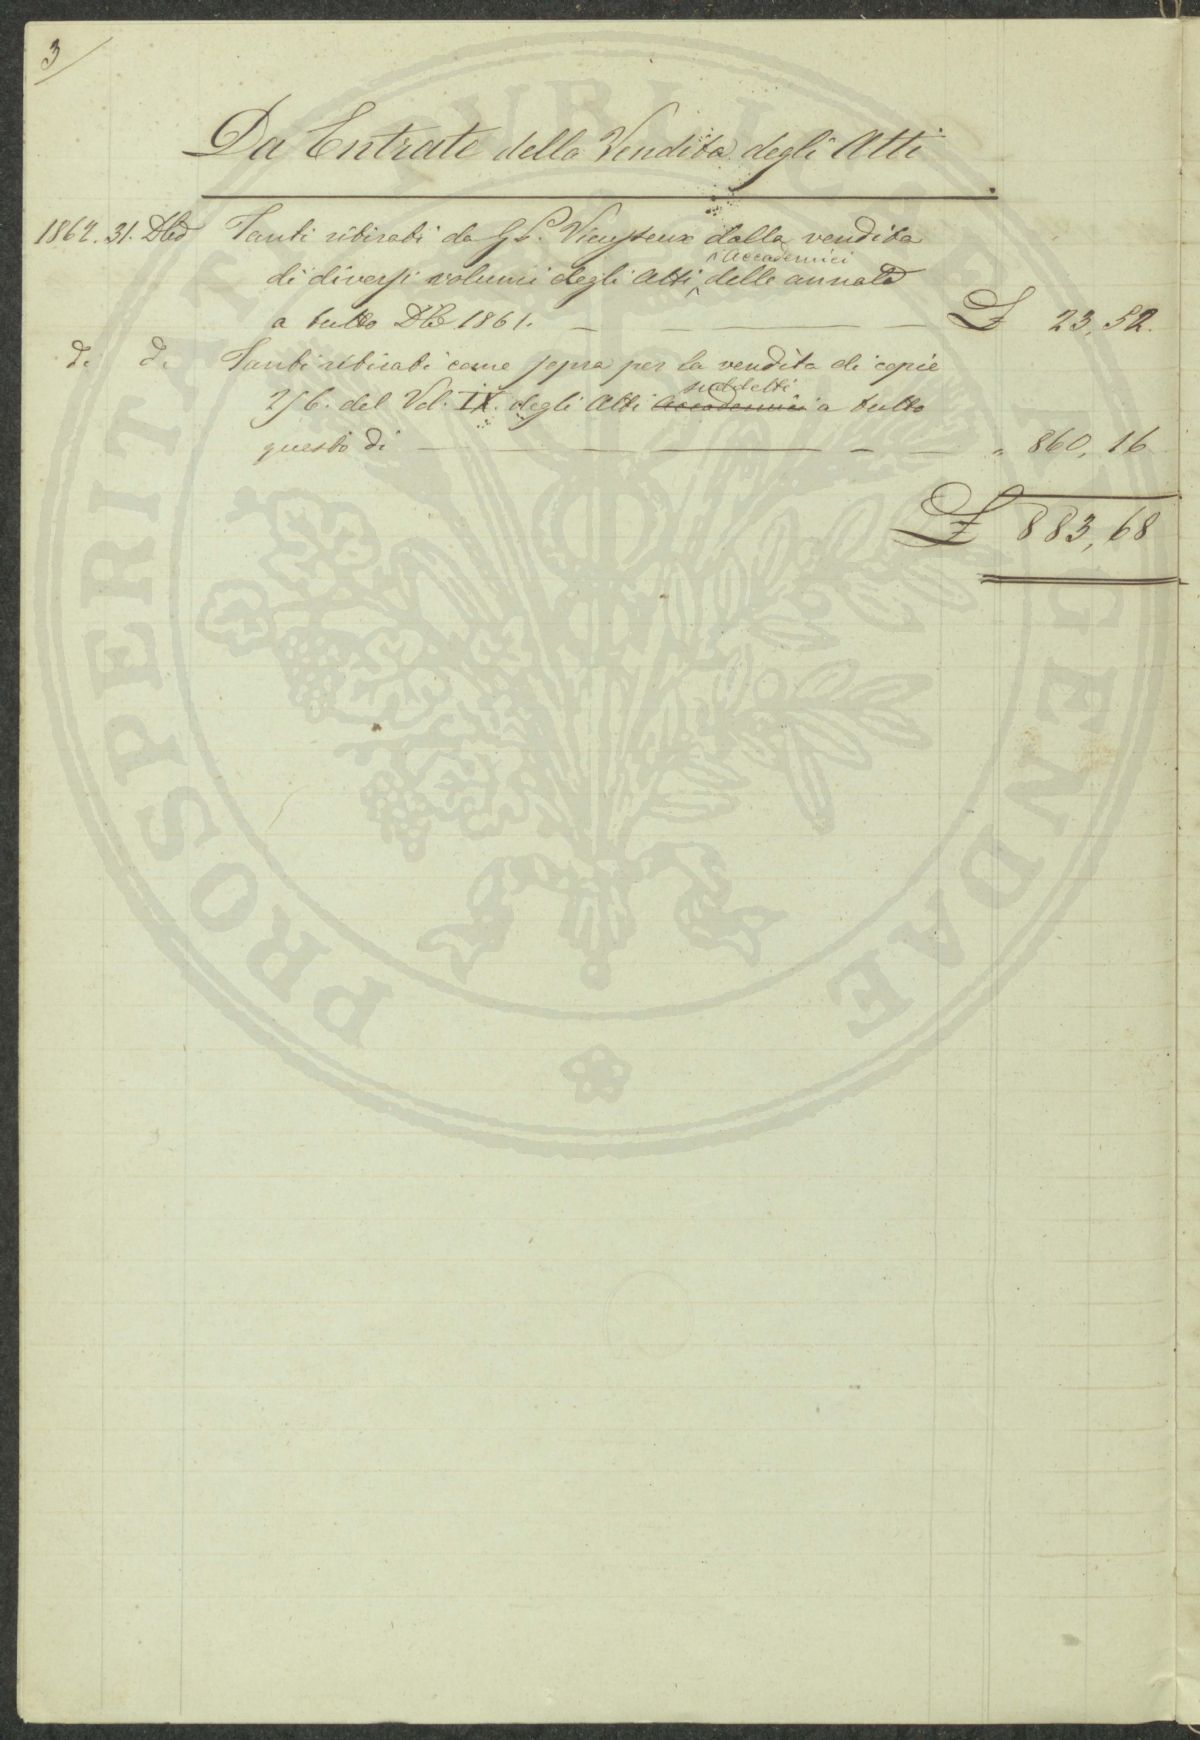 3
Da Entrate della Vendita degli Atti
1862. 31. Dbre Tanti ritirati da G. P. Vieusseux dalla vendita
di diversi volumi degli Atti Accademici delle annate
a tutto Dbre 1861. £ 23, 52.
d.o d.o Tanti ritirati come sopra per la vendita di copie
256. del Vol. IX. degli Atti Accademici suddetti a tutto
questo dì " 860, 16
£ 883, 68
PROSPERITATI PVBLICAE AVGENDAE